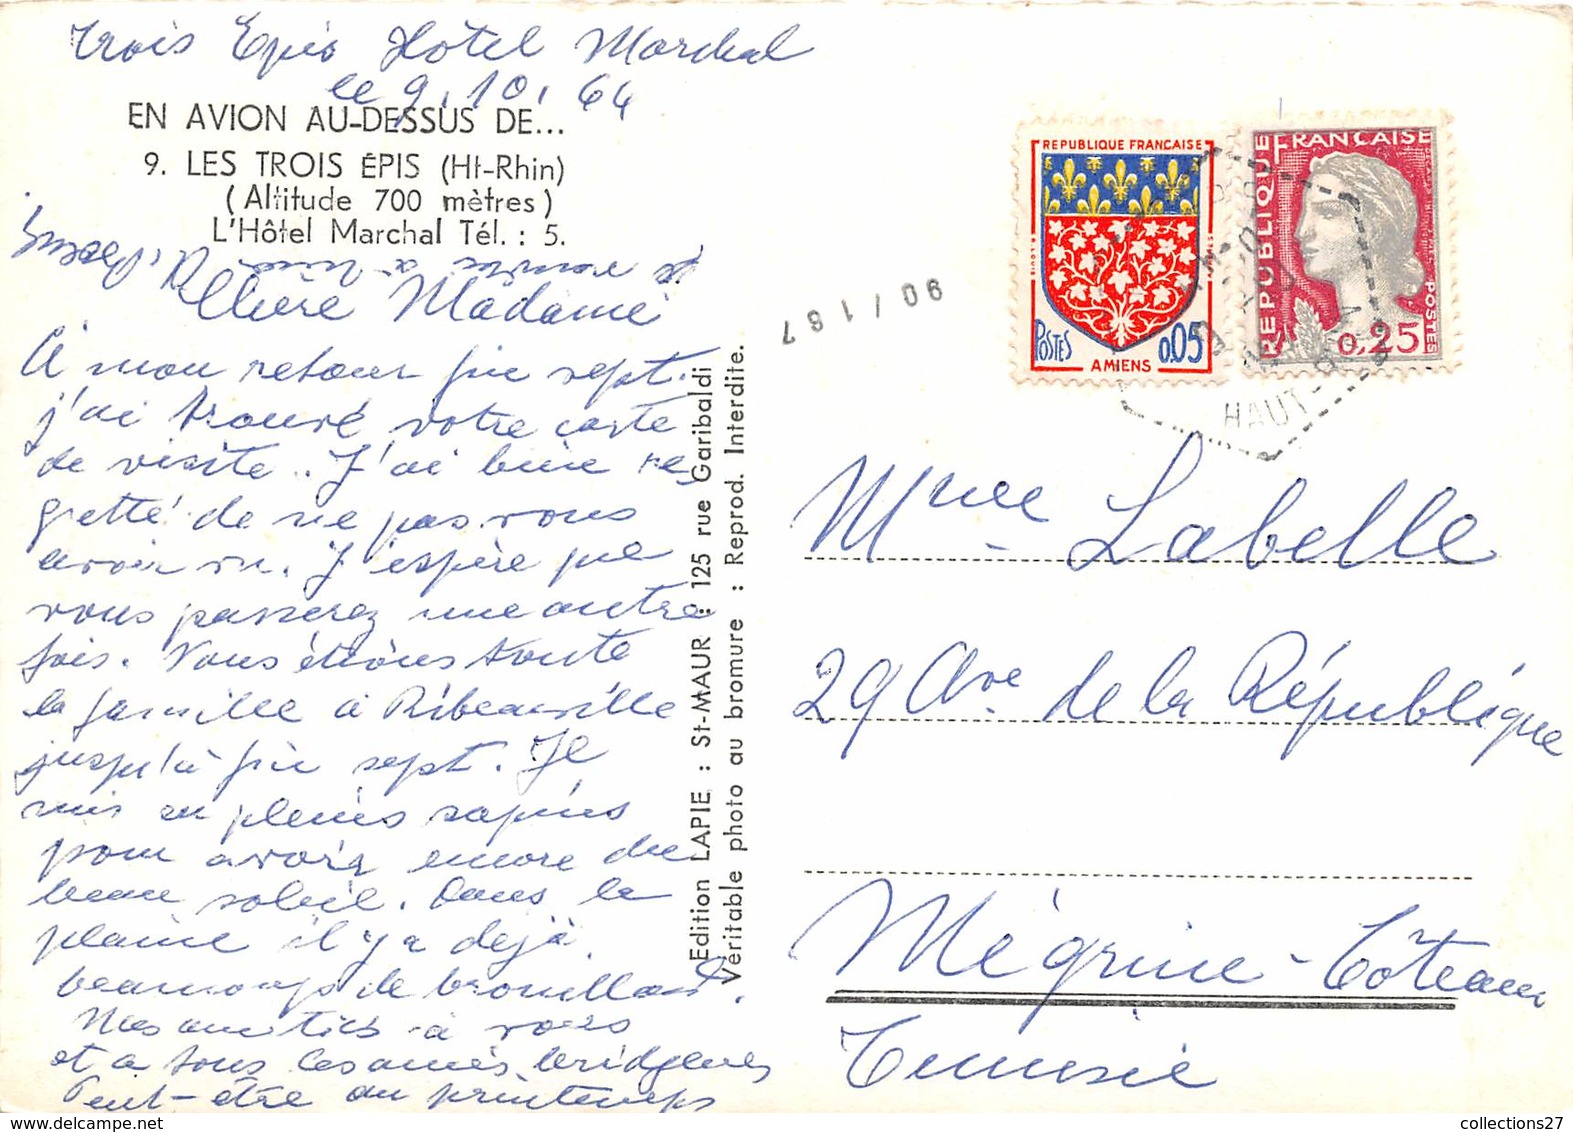 Trois Epis Hôtel Marchal
le 9.10.64
EN AVION AU-DESSUS DE...
9. LES TROIS ÉPIS (Ht-Rhin)
(Altitude 700 mètres)
L'Hôtel Marchal Tél. : 5.
Chère Madame
A mon retour fin sept.
j'ai trouvé votre carte
de visite. J'ai bien re
gretté de ne pas vous
avoir vu. J'espère que
vous passerez une autre
fois. Nous étions toute
la famille à Ribeauville
jusqu'à fin sept. Je
suis en pleins sapins
pour avoir encore du
beau soleil. Dans la
plaine il y a dejà
beaucoup de brouillard.
Mes amitiés à vous
et a tous les amis bridgeurs
Peut-être au printemps
Edition LAPIE : St-MAUR : 125 rue Garibaldi
Véritable photo au bromure : Reprod. Interdite.
90/167
REPUBLIQUE FRANÇAISE
POSTES 0,05
AMIENS
REPUBLIQUE FRANÇAISE
POSTES
0,25
HAUT-RHIN
Mme Labelle
29 Ave de la République
Mégrine-Côteaux
Tunisie
collections27